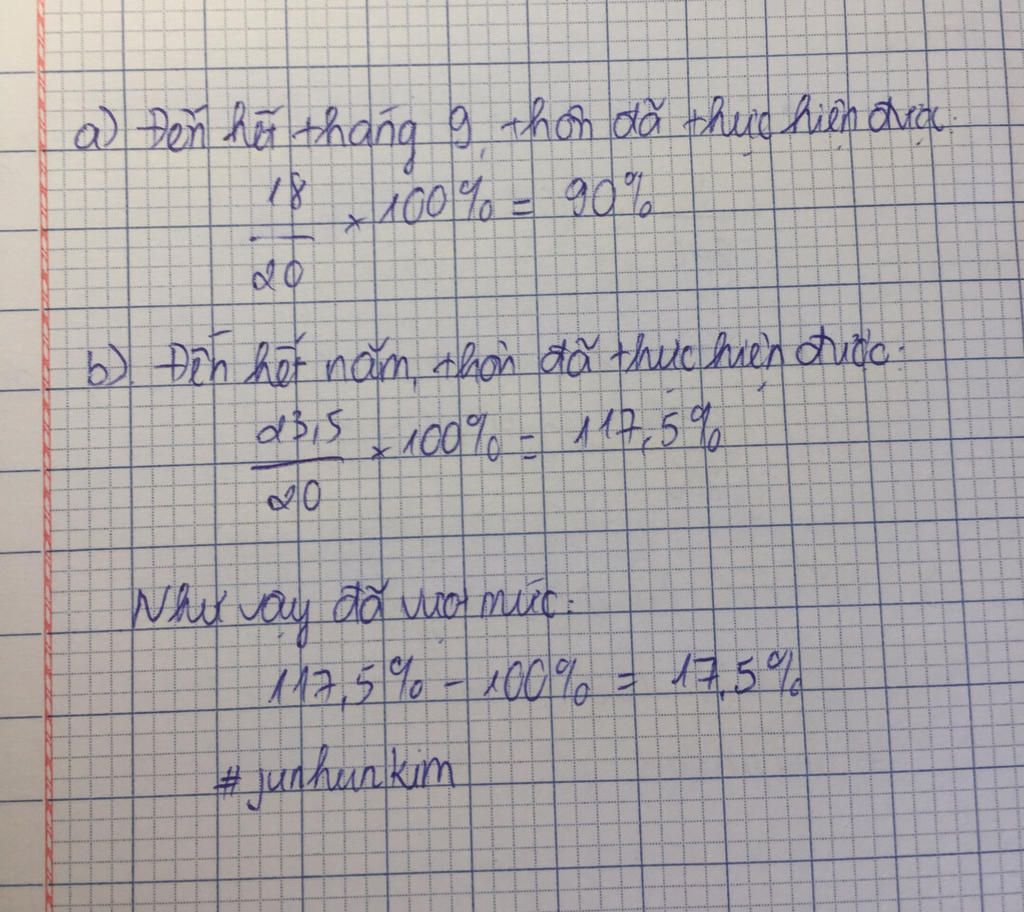 a) Đến hết tháng 9, thôn đã thực hiện được:
18/20 × 100% = 90%
b) Đến hết năm, thôn đã thực hiện được:
23,5/20 × 100% = 117,5%
Như vậy đã vượt mức:
117,5% - 100% = 17,5%
#junhunkim